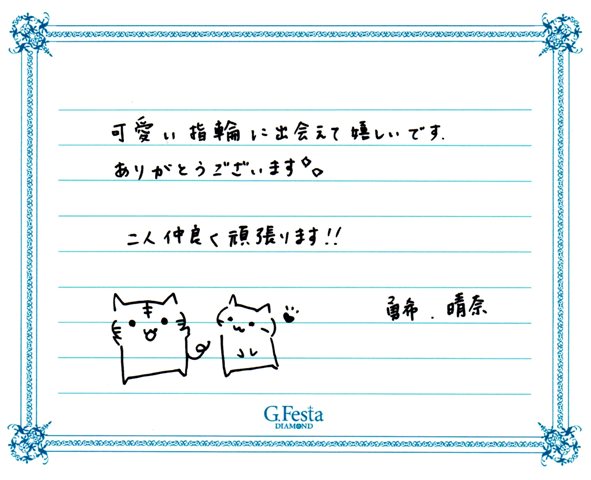 可愛い指輪に出会えて嬉しいです.
ありがとうございます
二人仲良く頑張ります!!
勇希.晴奈
G.Festa
DIAMOND